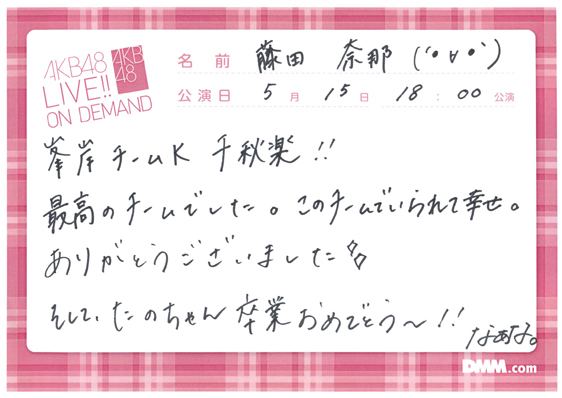 AKB48
LIVE!!
ON DEMAND
AKB
48
名前 藤田 奈那 ('•∀•`)
公演日 5月 15日 18:00 公演
峯岸チームK 千秋楽!!
最高のチームでした。このチームでいられて幸せ。
ありがとうございました
そして、たのちゃん卒業おめでとう〜!!
なぁな。
DMM.com